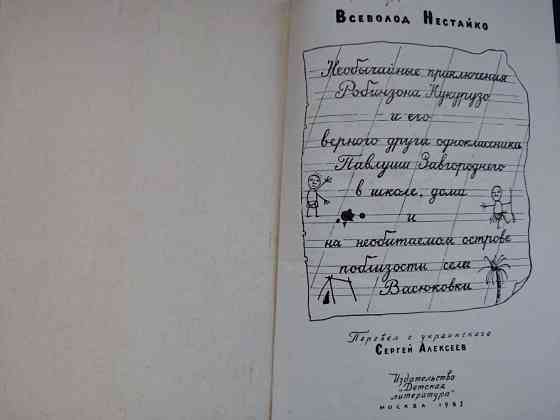 Всеволод Нестайко
Необычайные приключения
Робинзона Кукурузо
и его
верного друга одноклассника
Павлуши Завгороднего
в школе, дома
и
на необитаемом острове
поблизости села
Васюковки
Перевел с украинского
Сергей Алексеев
Издательство
"Детская
литература"
Москва